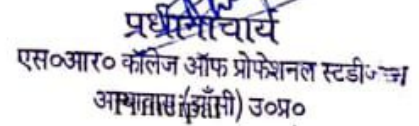 प्रधानाचार्य
एस०आर० कॉलेज ऑफ प्रोफेशनल स्टडीज
(झाँसी) उ०प्र०